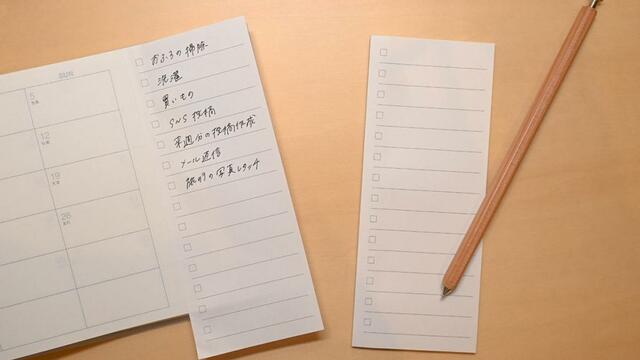 SUN
5
12
19
26
おふろの掃除
洗濯
買いもの
SNS投稿
来週分の投稿作成
メール返信
旅行の写真レタッチ